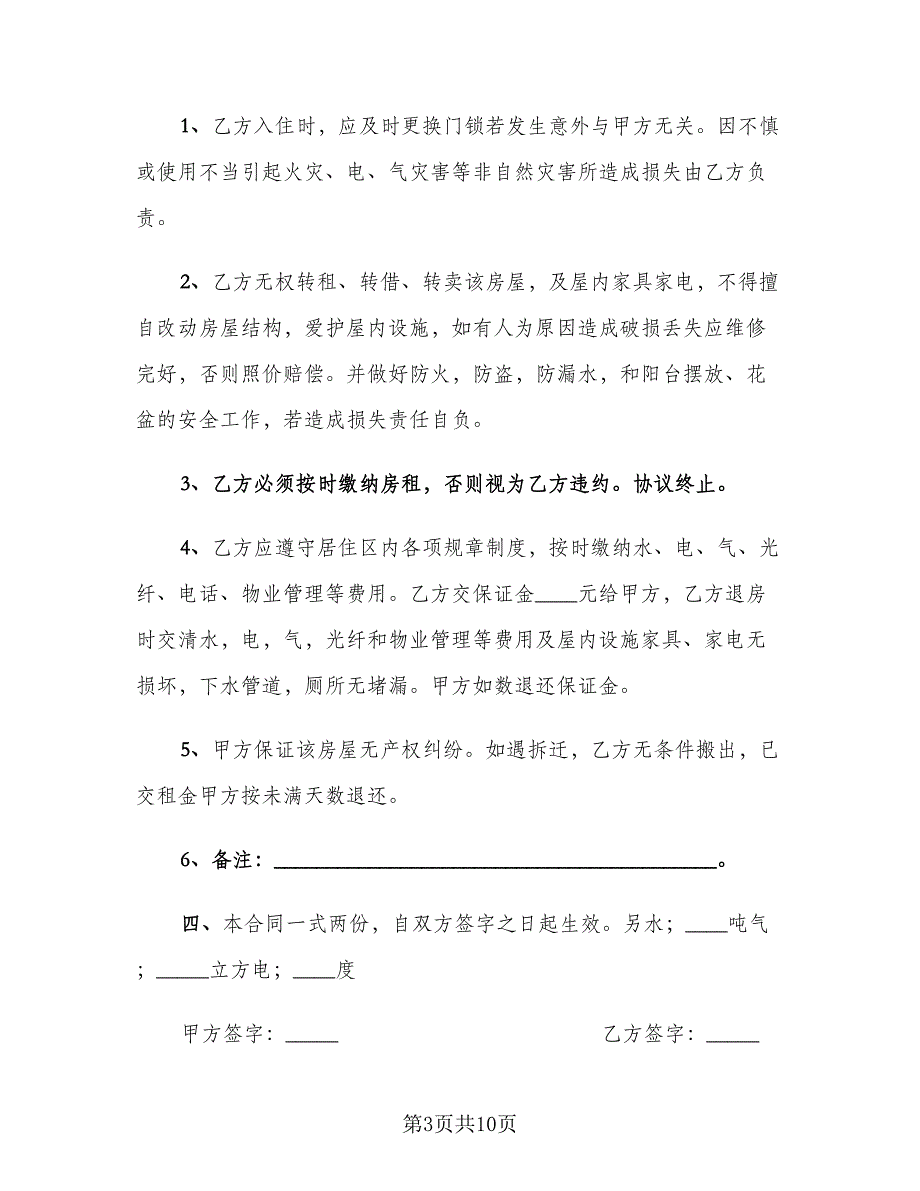 1、乙方入住时，应及时更换门锁若发生意外与甲方无关。因不慎
或使用不当引起火灾、电、气灾害等非自然灾害所造成损失由乙方负
责。
2、乙方无权转租、转借、转卖该房屋，及屋内家具家电，不得擅
自改动房屋结构，爱护屋内设施，如有人为原因造成破损丢失应维修
完好，否则照价赔偿。并做好防火，防盗，防漏水，和阳台摆放、花
盆的安全工作，若造成损失责任自负。
3、乙方必须按时缴纳房租，否则视为乙方违约。协议终止。
4、乙方应遵守居住区内各项规章制度，按时缴纳水、电、气、光
纤、电话、物业管理等费用。乙方交保证金____元给甲方，乙方退房
时交清水，电，气，光纤和物业管理等费用及屋内设施家具、家电无
损坏，下水管道，厕所无堵漏。甲方如数退还保证金。
5、甲方保证该房屋无产权纠纷。如遇拆迁，乙方无条件搬出，已
交租金甲方按未满天数退还。
6、备注：__________________________________________。
四、本合同一式两份，自双方签字之日起生效。另水；____吨气
；_____立方电；____度
甲方签字：_____ 乙方签字：_____
第3页共10页